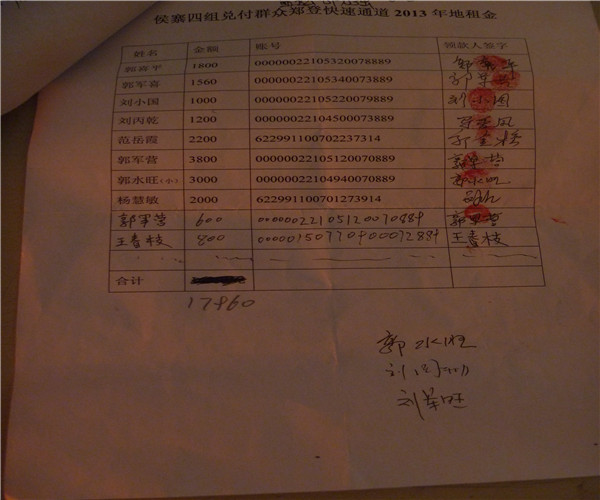 侯寨四组兑付群众郑登快速通道 2013 年地租金
姓名 金额 账号 领款人签字
郭喜平 1800 00000022105320078889
郭军喜 1560 00000022105340073889
刘小国 1000 00000022105220079889 刘小国
刘丙乾 1200 00000022104500073889
范岳霞 2200 622991100702237314
郭军营 3800 00000022105120070889 郭军营
郭水旺(小) 3000 00000022104940070889 郭水旺
杨慧敏 2000 622991100701273914
郭军营 600 00000022105120070889 郭军营
王春枝 800 王春枝
合计
17960
郭水旺
刘军旺